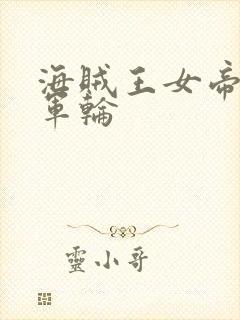 海賊王女帝
軍輪
靈小哥